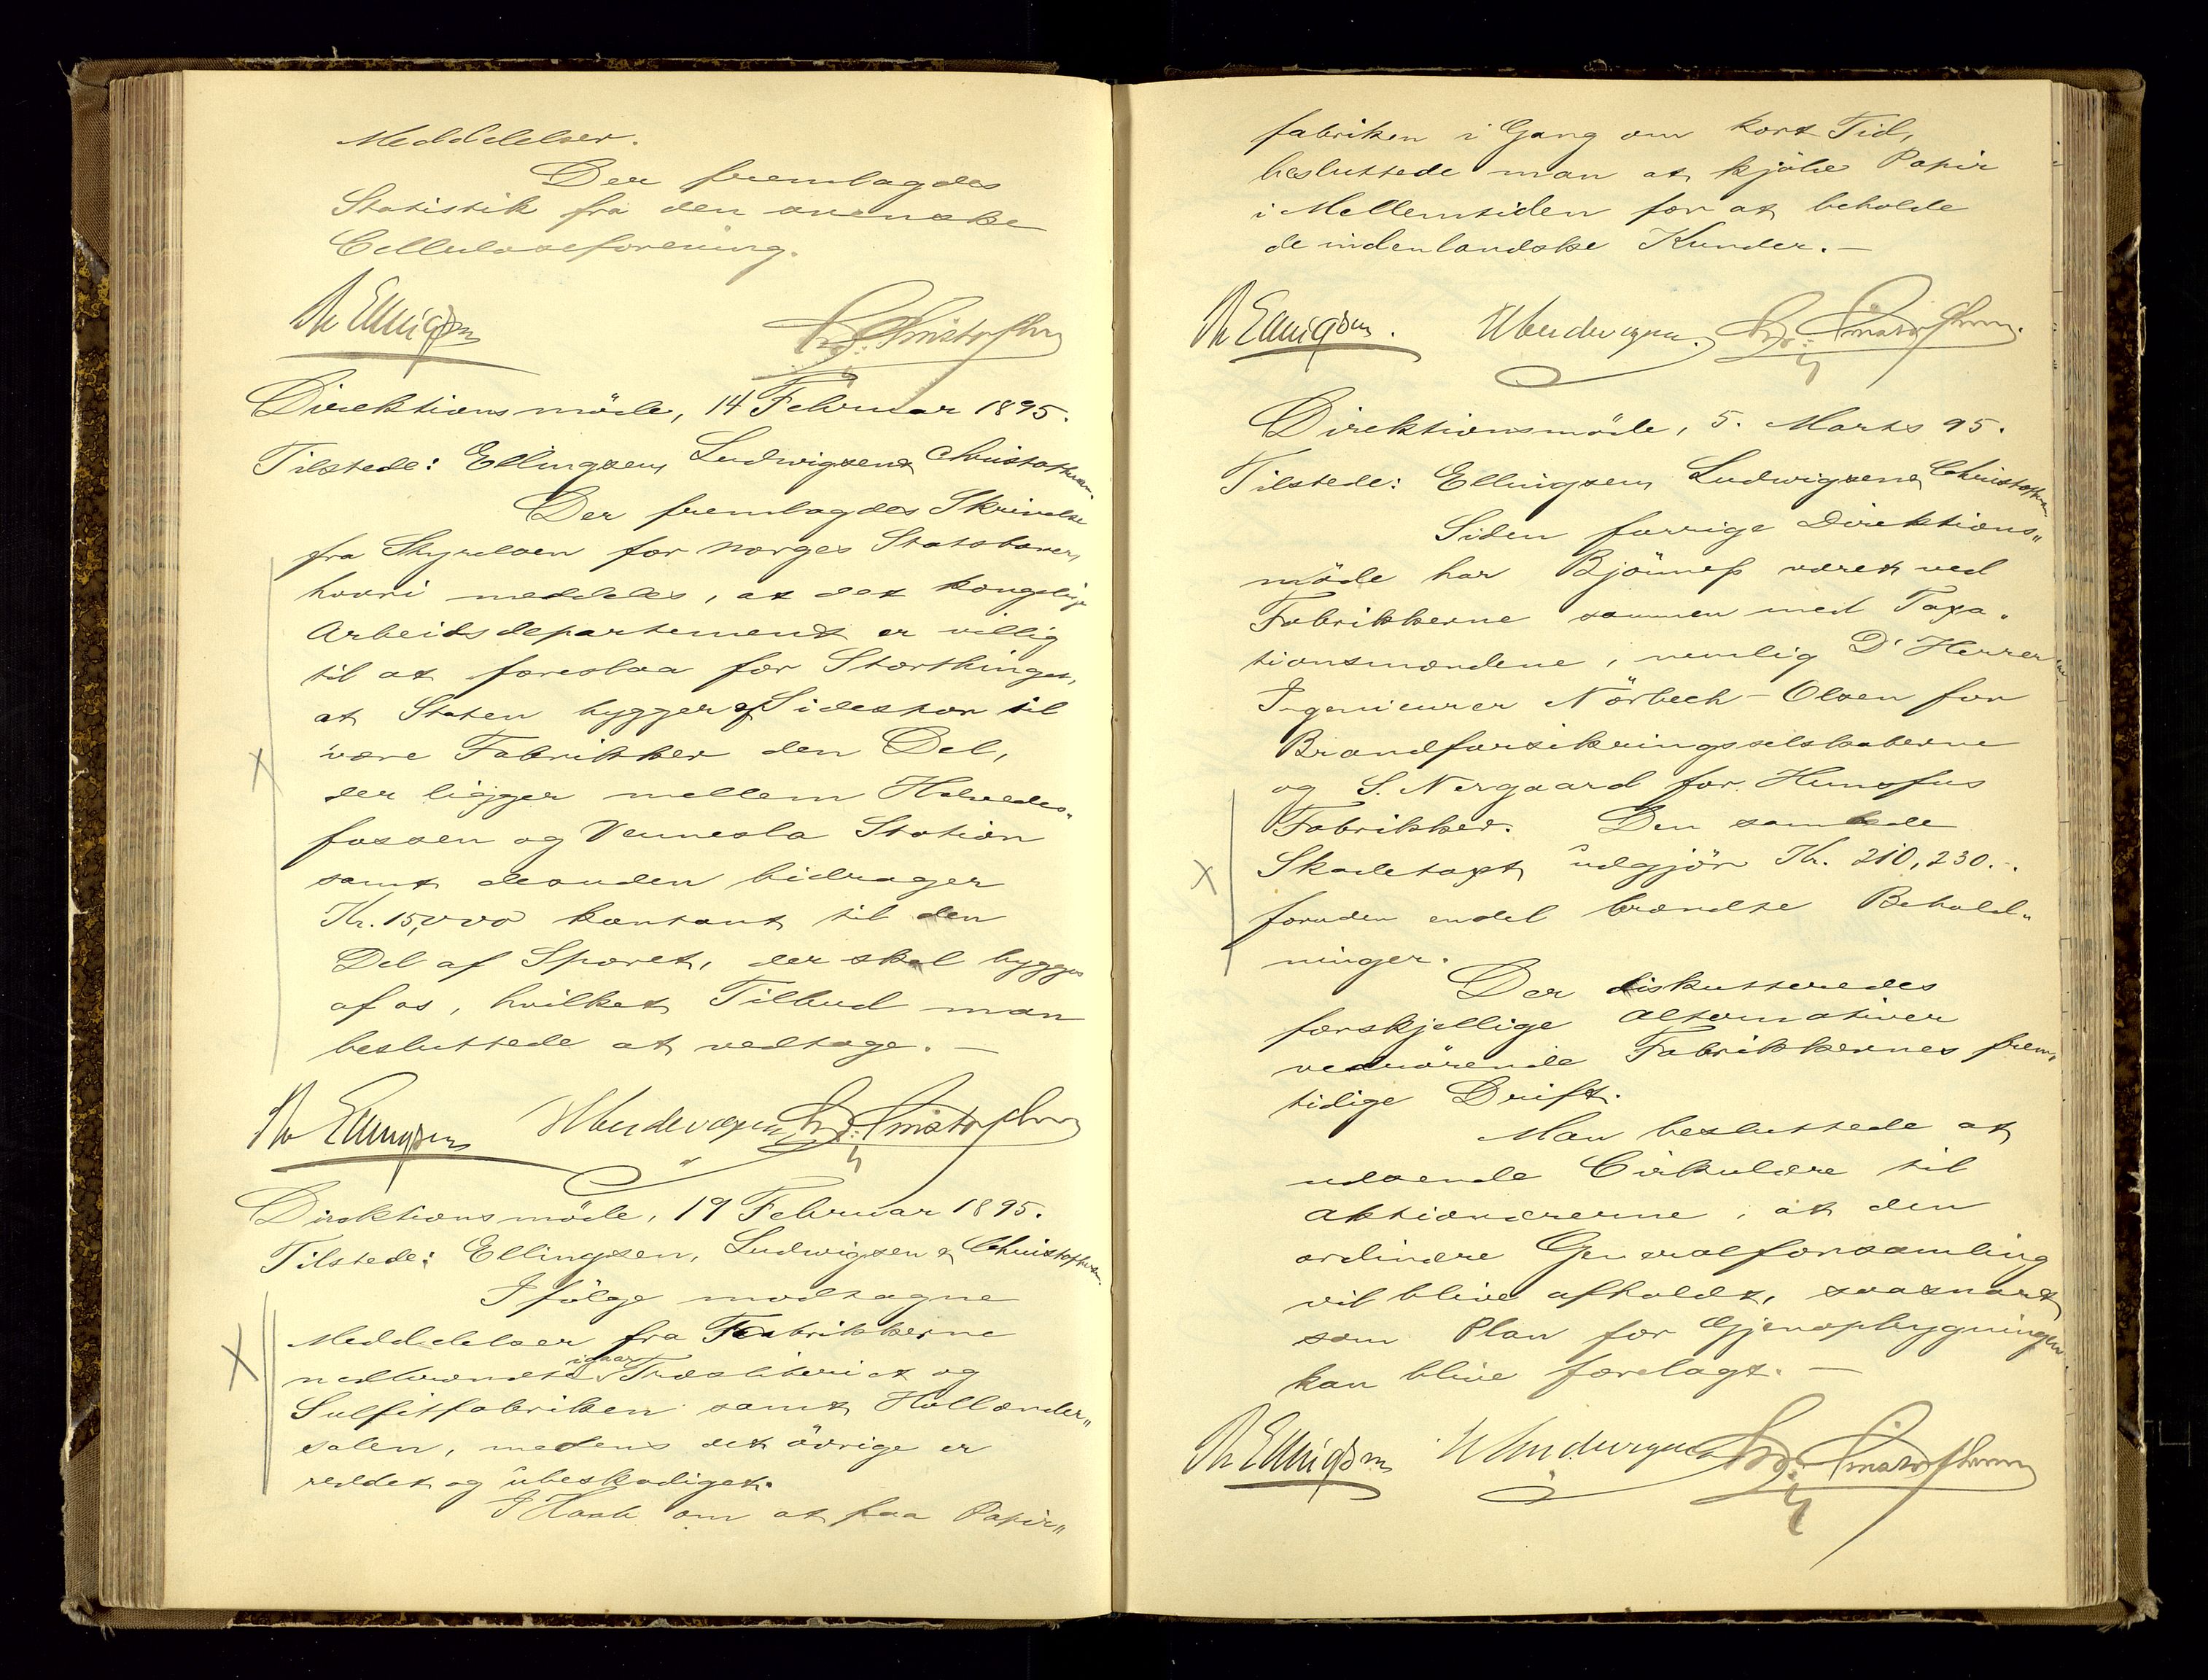 Meddelelser.
Der fremlagdes
Statistik fra den svenske
Celluloseforening.
Th Ellingsen Chr. Christophersen
Direktionsmöde, 14 Februar 1895.
Tilstede: Ellingsen, Ludwigsen & Christophersen.
Der fremlagdes Skrivelse
fra Styrelsen for Norges Statsbaner,
hvori meddeles, at det kongelige
Arbeidsdepartement er villig
til at foreslaa for Storthinget,
at Staten bygger af Sidespor til
vore Fabrikker den Del,
der ligger mellem Helvedes„
fossen og Vennesla Station
samt desuden bidrager
Kr. 15,000 kontant til den
Del af Sporet, der skal bygges
af os, hvilket Tilbud man
besluttede at vedtage. —
Th Ellingsen Ludwigsen Chr. Christophersen
Direktionsmöde, 19 Februar 1895.
Tilstede: Ellingsen, Ludwigsen & Christophersen.
Ifölge modtagne
Meddelelser fra Fabrikkerne
nedbrændte igaar Træsliberiet og
Sulfitfabriken samt Hollænder„
salen, medens det övrige er
reddet og übeskadiget.
I Haab om at faa Papir„
fabriken i Gang om kort Tid,
besluttede man at kjöbe Papir
i Mellemtiden for at beholde
de indenlandske Kunder. —
Th Ellingsen. Ludwigsen. Chr. Christophersen.
Direktionsmöde, 5. Marts 95.
Tilstede: Ellingsen, Ludwigsen & Christophersen
Siden forrige Direktions„
möde har Bjönness været ved
Fabrikkerne sammen med Taxa„
tionsmændene, nemlig D' Herrer
Ingenieurer Nörbech-Olsen for
Brandforsikringsselskaberne
og S. Nergaard for Hunsfos
Fabrikker. Den samlede
Skadetaxt udgjör Kr. 210,230.-.
foruden endel brændte Behold„
ninger.
Der diskutteredes
forskjellige Alternativer
vedrörende Fabrikkernes frem„
tidige Drift.
Man besluttede at
udsende Cirkulære til
Aktionærerne, at den
ordinære Generalforsamling
vil blive afholdt, saasnart
som Plan for Gjenopbygningen
kan blive forelagt. —
Th Ellingsen Ludwigsen Chr. Christophersen